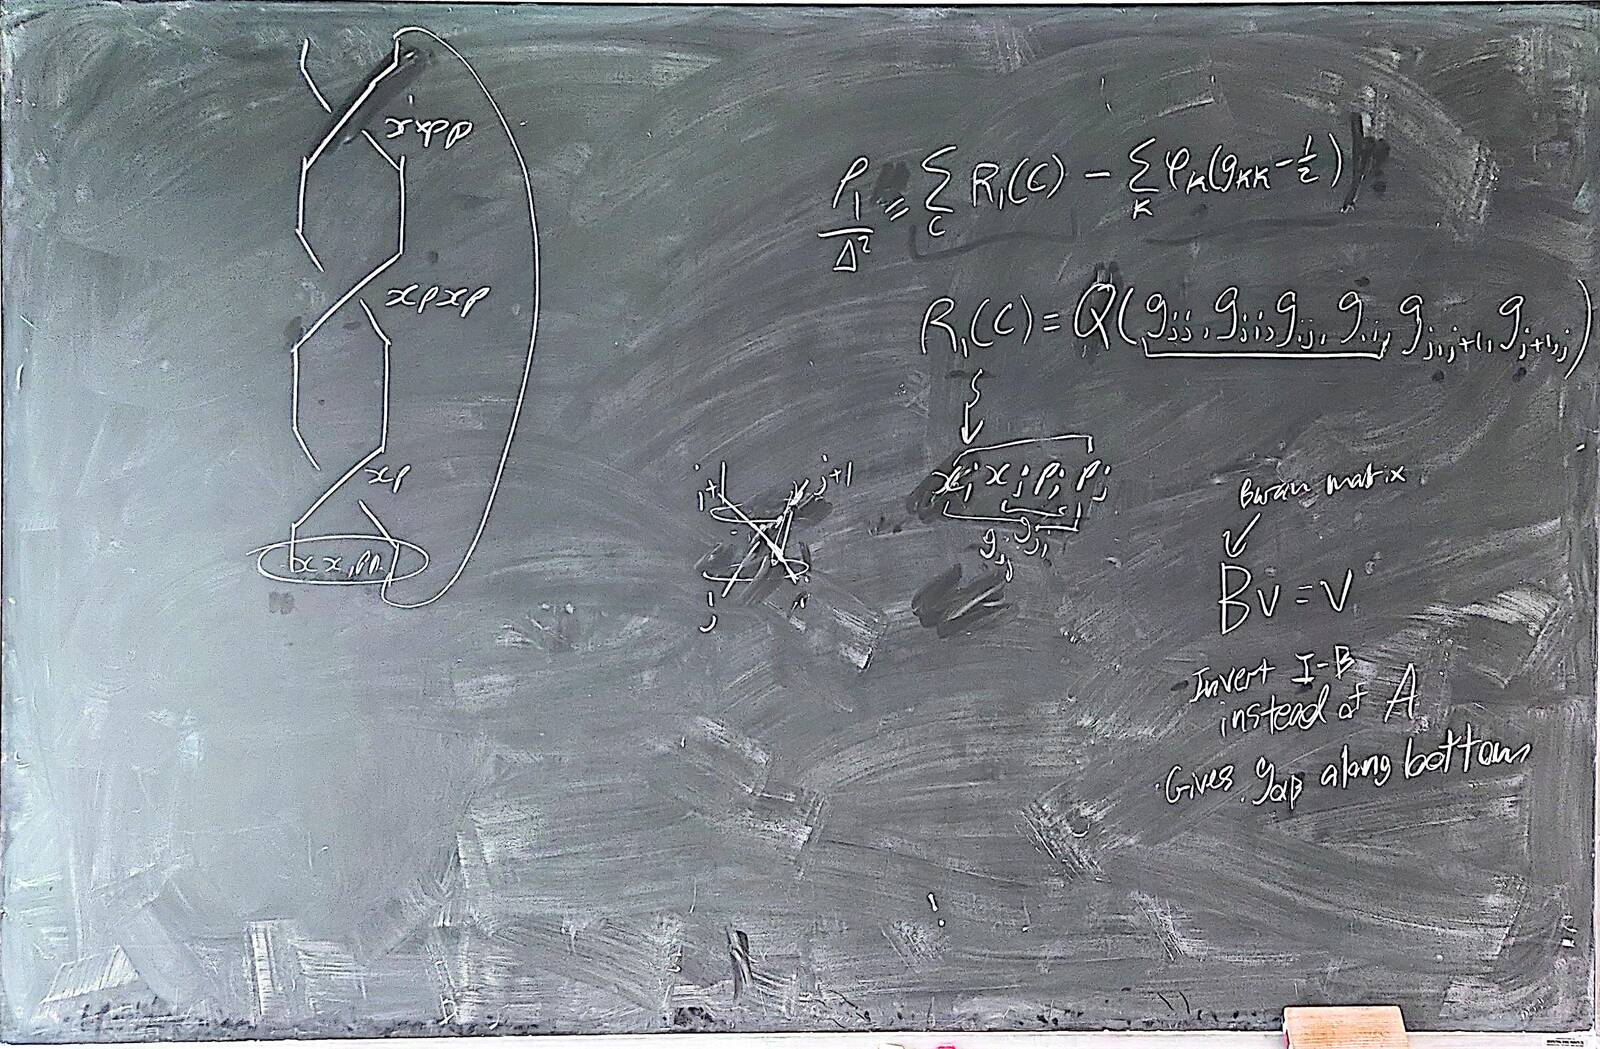 xxpp
xpxp
xp
xx,pp
ρ₁/Δ² = Σ_C R₁(C) − Σ_K φ_K(g_KK − 1/2)
R₁(C) = Q(g_jj, g_ji, g_ij, g_ii, g_j,j+1, g_j+1,j)
i+1 j+1
j i
x_i x_j p_i p_j
g_ij g_ji
Burau matrix
Bv = v
Invert I-B
instead of A
Gives g_αβ along bottom